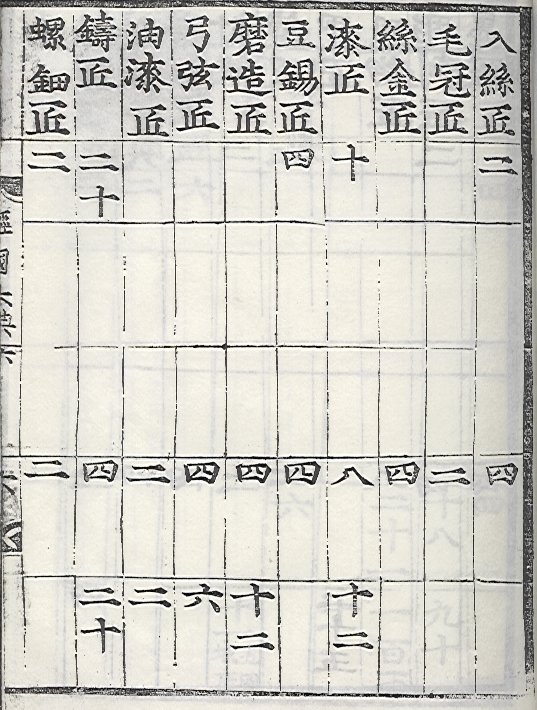 入絲匠 二 四
毛冠匠 二
絲金匠 四
漆匠 十 八 十二
豆錫匠 四 四
磨造匠 四 十二
弓弦匠 四 六
油漆匠 二 二
鑄匠 二十 四 二十
螺鈿匠 二 二
經國大典六